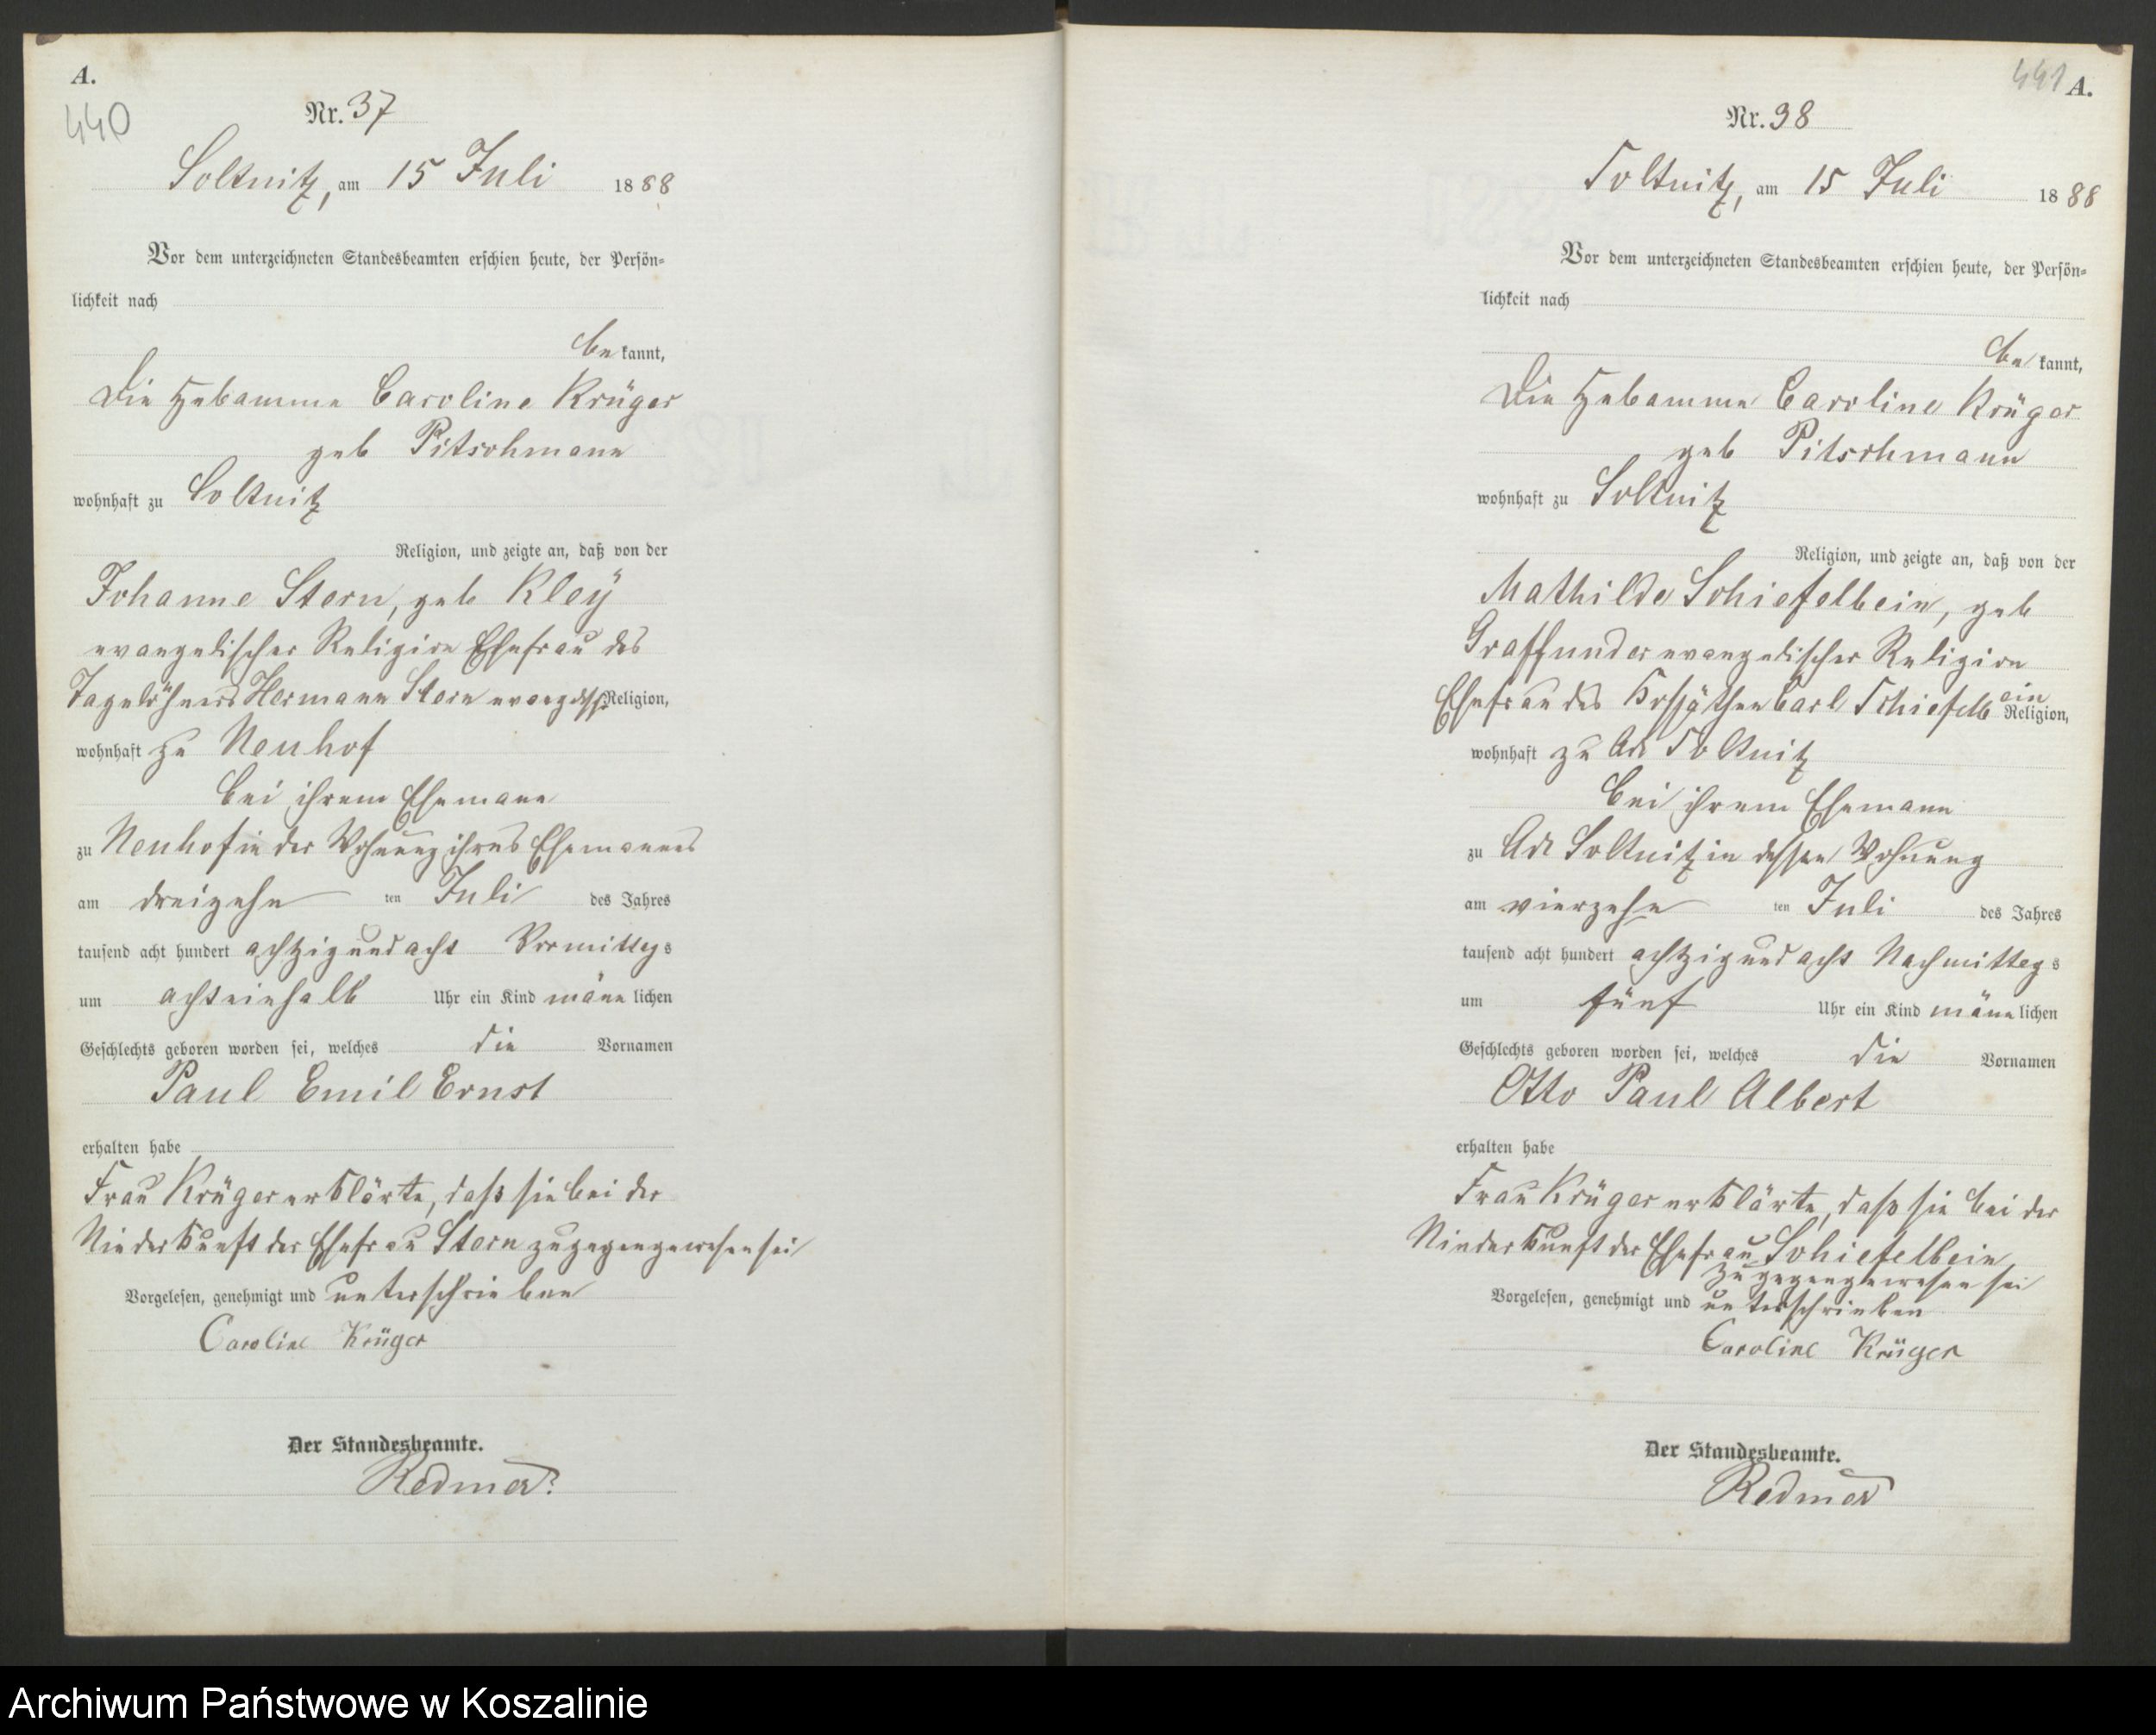 A.
440
Nr. 37
Soltnitz, am 15 Juli 1888
Vor dem unterzeichneten Standesbeamten erschien heute, der Persön-
lichkeit nach
be kannt,
die Hebamme Caroline Krüger
geb Pitschmann
wohnhaft zu Soltnitz
Religion, und zeigte an, daß von der
Johanne Stern, geb Kley
evangelischer Religion Ehefrau des
Tagelöhners Hermann Stern Religion,
wohnhaft zu Neuhof
bei ihrem Ehemann
zu Neuhof in der Wohnung ihres Ehemannes
am dreizehn ten Juli des Jahres
tausend acht hundert achtzig und acht Vormittags
um achteinhalb Uhr ein Kind männlichen
Geschlechts geboren worden sei, welches die Vornamen
Paul Emil Ernst
erhalten habe
Frau Krüger erklärte, daß sie bei der
Niederkunft der Ehefrau Stern zugegen gewesen sei
Vorgelesen, genehmigt und unterschrieben
Caroline Krüger
Der Standesbeamte.
Redmer
441 A.
Nr. 38
Soltnitz, am 15 Juli 1888
Vor dem unterzeichneten Standesbeamten erschien heute, der Persön-
lichkeit nach
be kannt,
die Hebamme Caroline Krüger
geb Pitschmann
wohnhaft zu Soltnitz
Religion, und zeigte an, daß von der
Mathilde Schiefelbein, geb
Graffunder evangelischer Religion
Ehefrau des Carl Schiefelbein Religion,
wohnhaft zu Adl Soltnitz
bei ihrem Ehemann
zu Adl Soltnitz in dessen Wohnung
am vierzehn ten Juli des Jahres
tausend acht hundert achtzig und acht Nachmittags
um fünf Uhr ein Kind männlichen
Geschlechts geboren worden sei, welches die Vornamen
Otto Paul Albert
erhalten habe
Frau Krüger erklärte, daß sie bei der
Niederkunft der Ehefrau Schiefelbein
zugegen gewesen sei
Vorgelesen, genehmigt und unterschrieben
Caroline Krüger
Der Standesbeamte.
Redmer
Archiwum Państwowe w Koszalinie